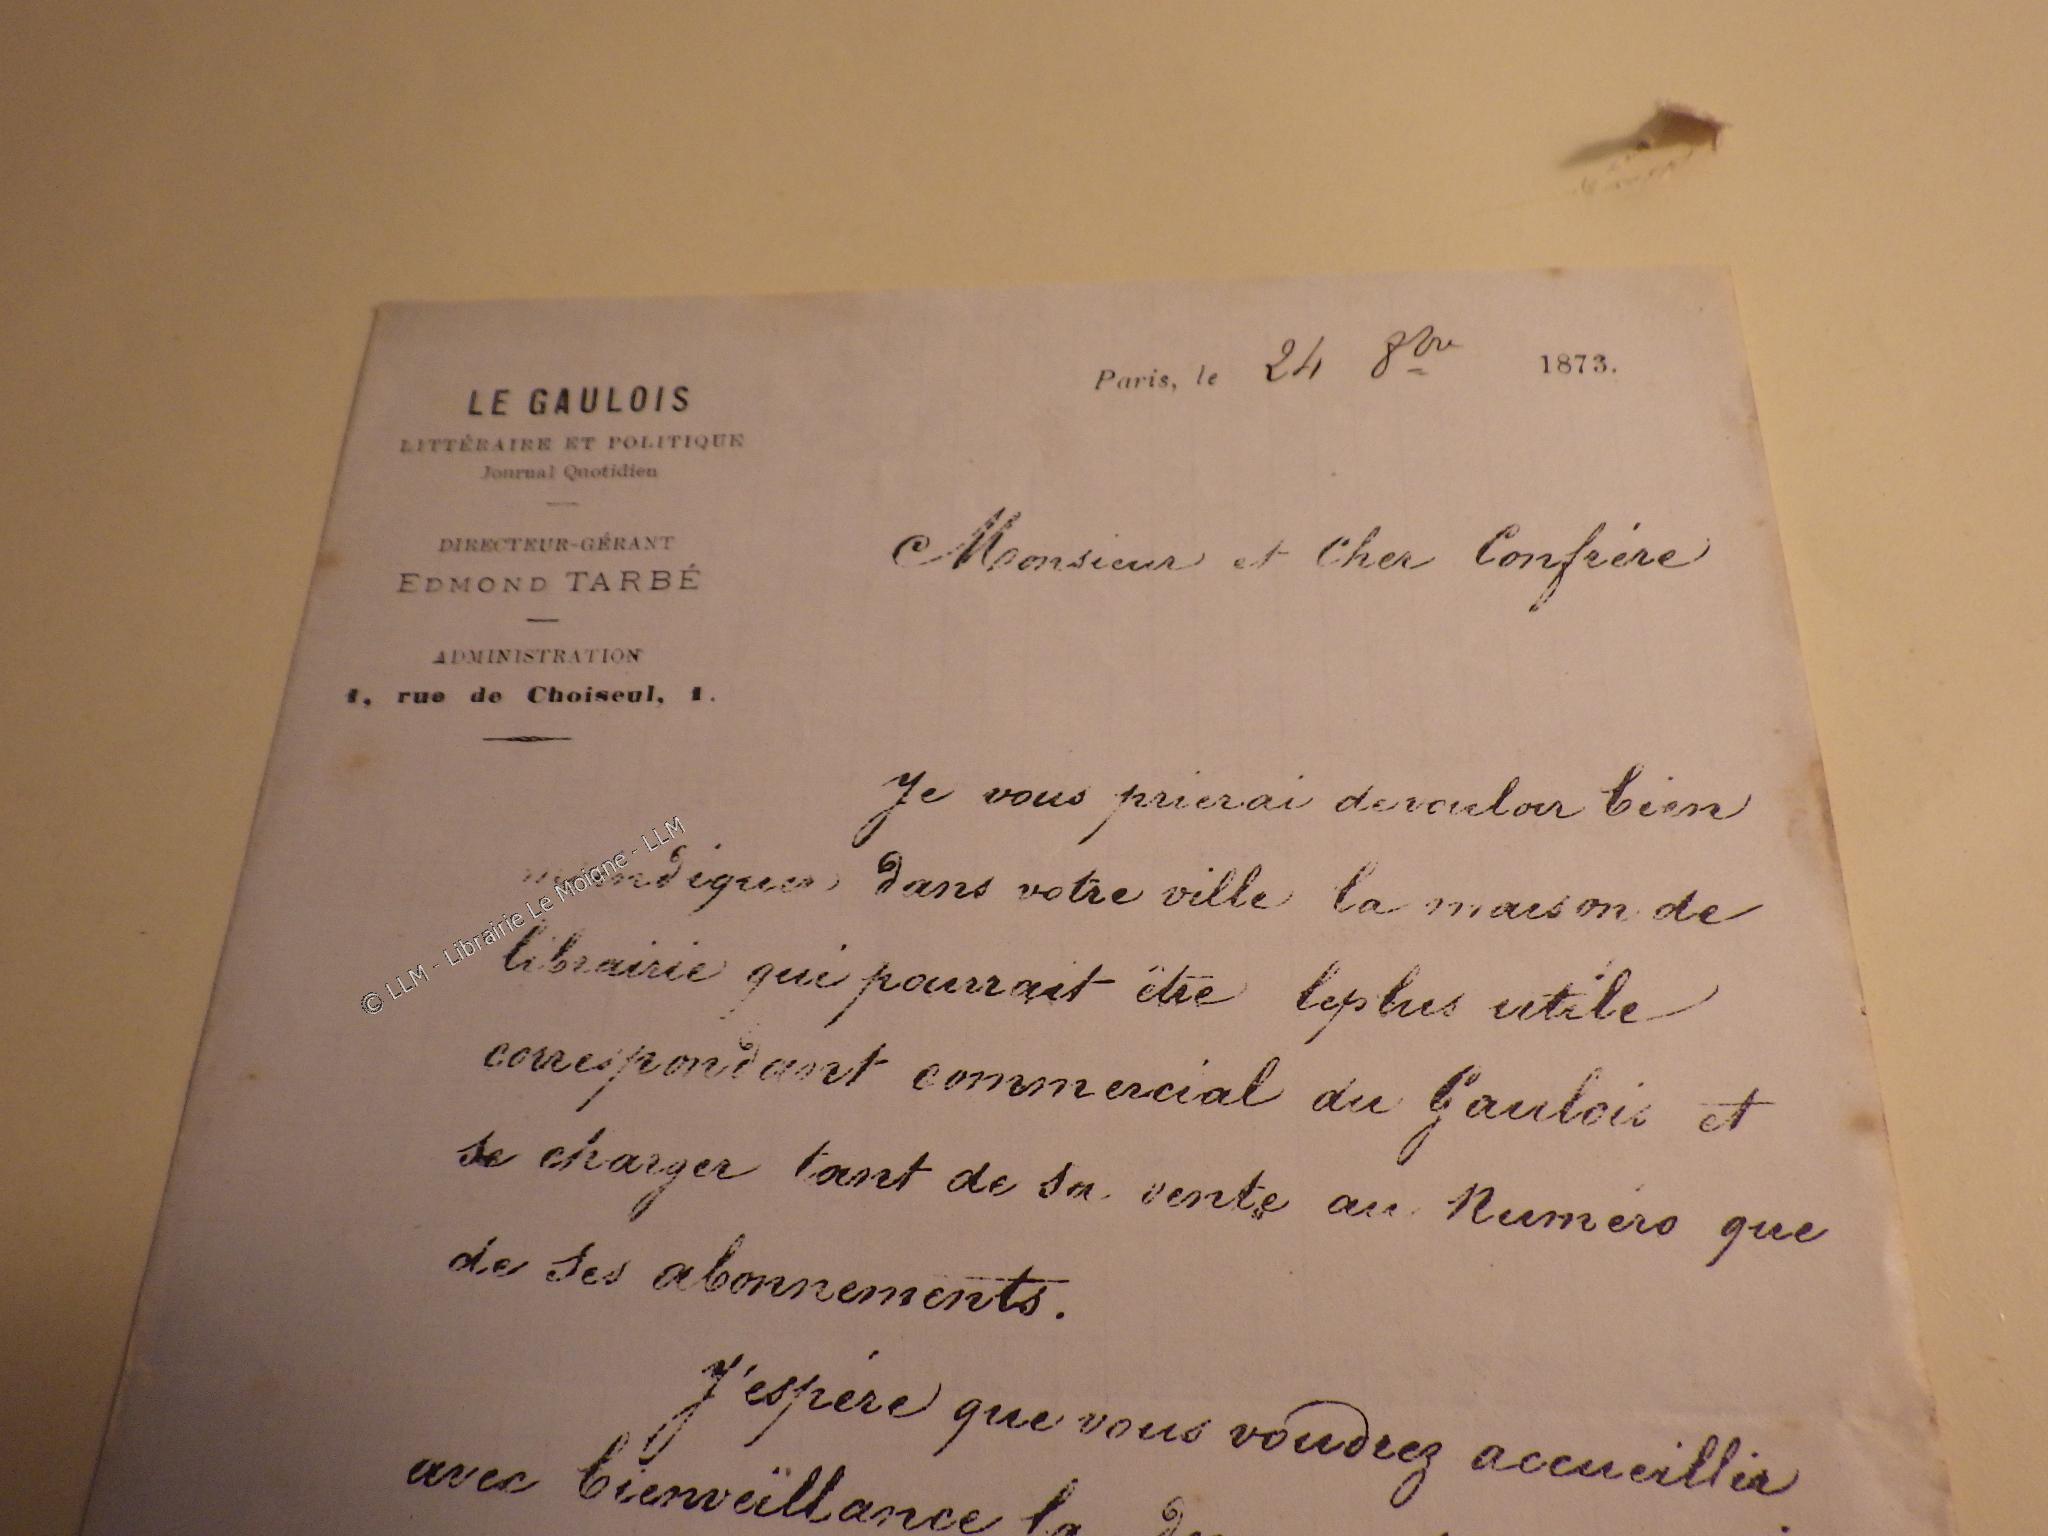 LE GAULOIS
LITTÉRAIRE ET POLITIQUE
Journal Quotidien
DIRECTEUR-GÉRANT
EDMOND TARBÉ
ADMINISTRATION
1, rue de Choiseul, 1.
Paris, le 24 8bre 1873.
Monsieur et Cher Confrère
Je vous prierai de vouloir bien
m'indiquer dans votre ville la maison de
librairie qui pourrait être le plus utile
correspondant commercial du Gaulois et
se charger tant de sa vente au Numéro que
de ses abonnements.
J'espère que vous voudrez accueillir
avec bienveillance la
© LLM - Librairie Le Moigne - LLM